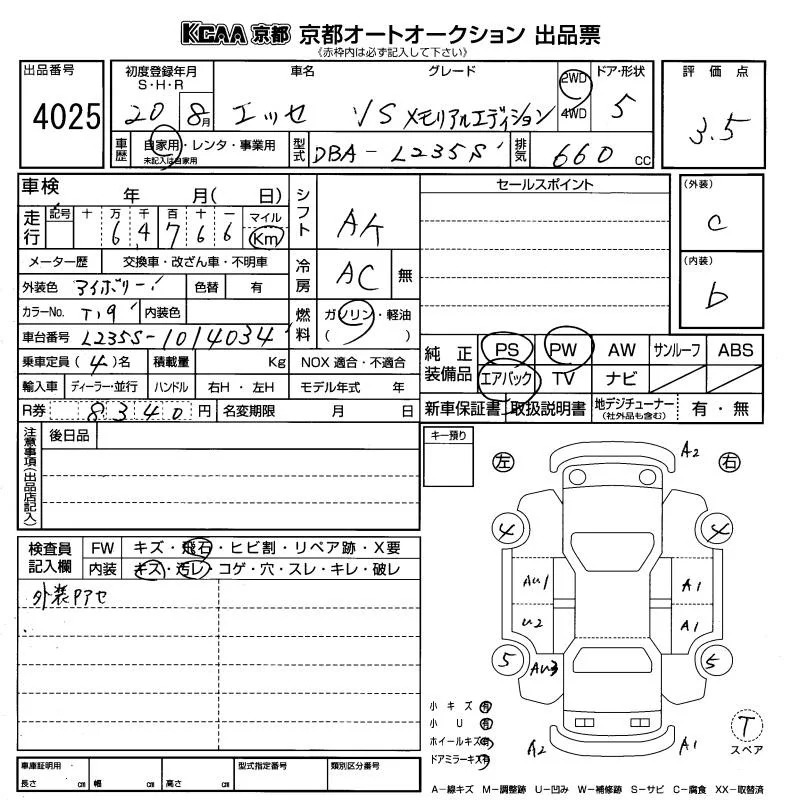 KCAA 京都 京都オートオークション 出品票
《赤枠内は必ず記入して下さい》
出品番号 4025
初度登録年月 S・H・R 20 8月
車名 エッセ
グレード VS メモリアルエディション
2WD 4WD
ドア・形状 5
評価点 3.5
車歴 自家用・レンタ・事業用
未記入は自家用
型式 DBA-L235S
排気 660 CC
車検 年 月( 日)
シフト AK
セールスポイント
(外装) C
走行 記号 十 万 千 百 十 一 マイル Km
6 4 7 6 6
(内装) b
メーター歴 交換車・改ざん車・不明車
冷房 AC 無
外装色 アイボリー
色替 有
カラーNo. T19 内装色
燃料 ガソリン・軽油 ( )
車台番号 L235S-1014034
純正装備品 PS PW AW サンルーフ ABS
エアバック TV ナビ
乗車定員 (4)名 積載量 Kg NOX 適合・不適合
輸入車 ディーラー・並行 ハンドル 右H・左H モデル年式 年
R券 8340 円 名変期限 月 日
新車保証書 取扱説明書 地デジチューナー (社外品も含む) 有・無
注意事項(出品店記入)
後日品
キー預り
左 右
A2
4 4
AU1 A1
U2 A1
5 AU3 5
A2 A1
検査員記入欄 FW キズ・飛石・ヒビ割・リペア跡・X要
内装 キズ・汚レ・コゲ・穴・スレ・キレ・破レ
外装Pアセ
小キズ 有
小U 有
ホイールキズ 有
ドアミラーキズ 有
T
スペア
車庫証明用 長さ cm 幅 cm 高さ cm 型式指定番号 類別区分番号
A-線キズ M-調整跡 U-凹み W-補修跡 S-サビ C-腐食 XX-取替済